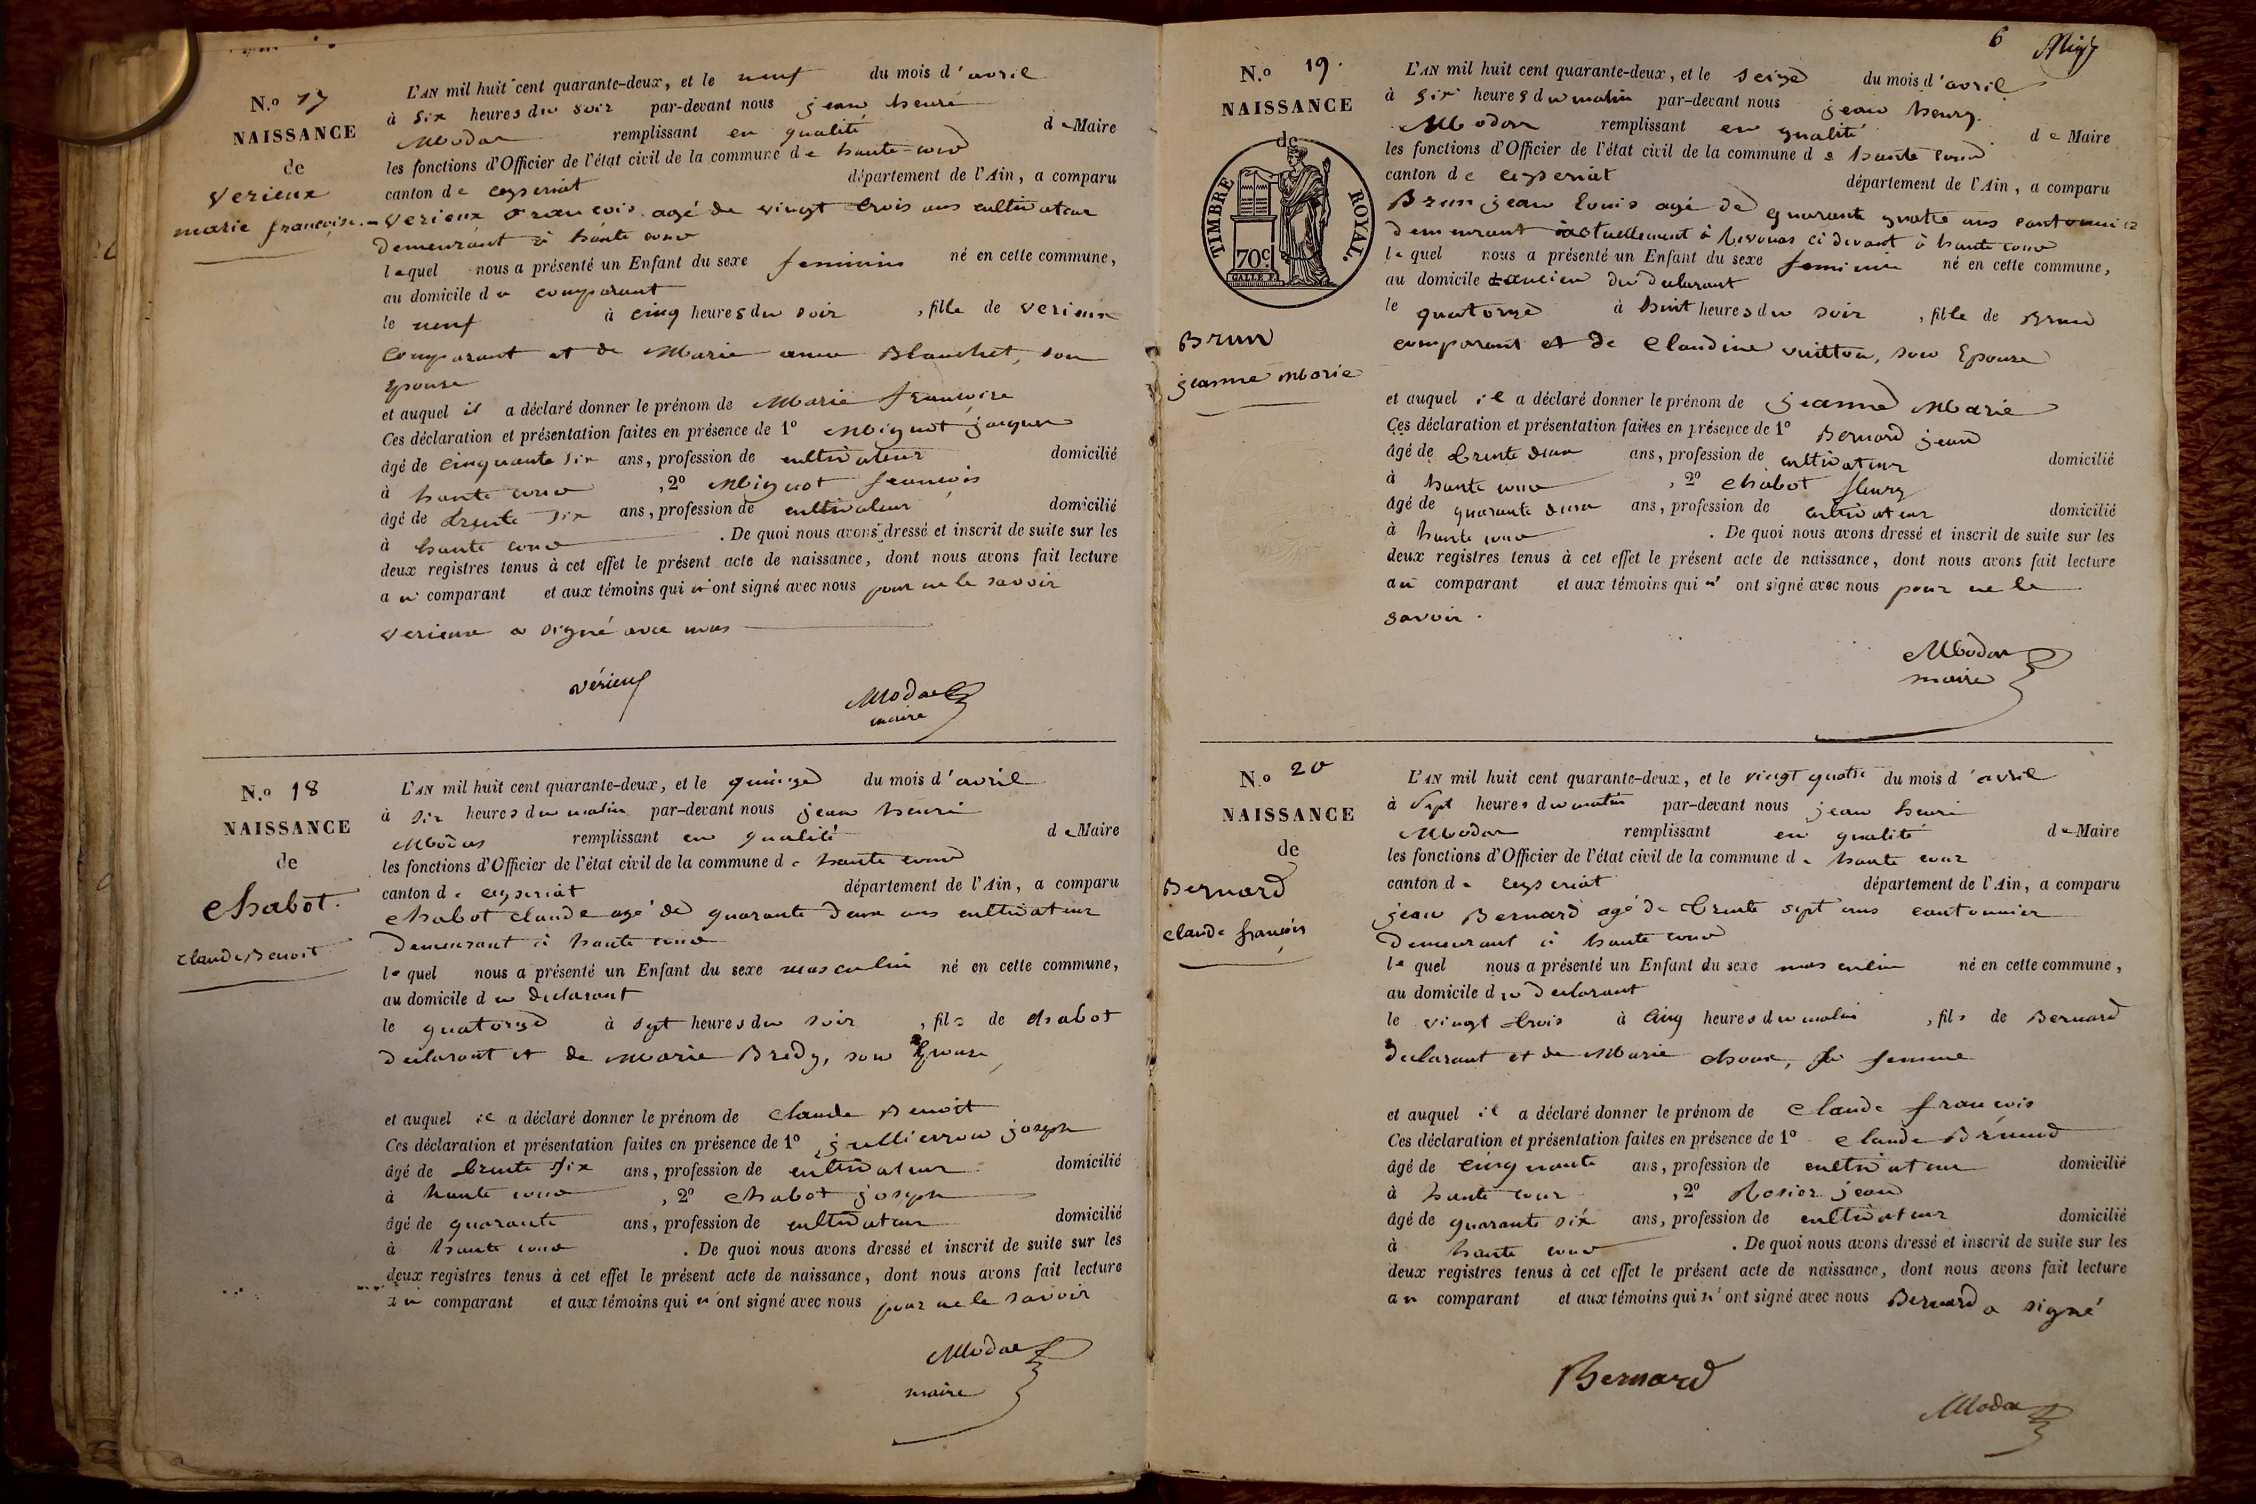 N.º 17
NAISSANCE
de
Verieux
marie françoise.
L'AN mil huit cent quarante-deux, et le neuf du mois d'avril
à six heures du soir par-devant nous jean henri
Modas remplissant en qualité de Maire
les fonctions d'Officier de l'état civil de la commune de haute-cour
canton de ceyseriat département de l'Ain, a comparu
Verieux françois agé de vingt trois ans cultivateur
demeurant à haute cour
lequel nous a présenté un Enfant du sexe feminin né en cette commune,
au domicile du comparant
le neuf à cinq heures du soir, fille de verieux
comparant et de Marie anne Blanchet, son
epouse
et auquel il a déclaré donner le prénom de Marie françoise
Ces déclaration et présentation faites en présence de 1º Mignot jacques
âgé de cinquante six ans, profession de cultivateur domicilié
à haute cour, 2º Mignot françois
âgé de trente six ans, profession de cultivateur domicilié
à haute cour. De quoi nous avons dressé et inscrit de suite sur les
deux registres tenus à cet effet le présent acte de naissance, dont nous avons fait lecture
au comparant et aux témoins qui n'ont signé avec nous pour ne le savoir
verieux a signé avec nous
vérieux
Modas
maire
N.º 18
NAISSANCE
de
Chabot.
Claude Benoit
L'AN mil huit cent quarante-deux, et le quinze du mois d'avril
à six heures du matin par-devant nous jean henri
Modas remplissant en qualité de Maire
les fonctions d'Officier de l'état civil de la commune de haute cour
canton de ceyseriat département de l'Ain, a comparu
Chabot claude agé de quarante deux ans cultivateur
demeurant à haute cour
lequel nous a présenté un Enfant du sexe masculin né en cette commune,
au domicile du declarant
le quatorze à sept heures du soir, fils de chabot
declarant et de Marie Bredy, son Epouse
et auquel il a déclaré donner le prénom de claude Benoit
Ces déclaration et présentation faites en présence de 1º jullierron joseph
âgé de trente six ans, profession de cultivateur domicilié
à haute cour, 2º chabot joseph
âgé de quarante ans, profession de cultivateur domicilié
à haute cour. De quoi nous avons dressé et inscrit de suite sur les
deux registres tenus à cet effet le présent acte de naissance, dont nous avons fait lecture
au comparant et aux témoins qui n'ont signé avec nous pour ne le savoir
Modas
maire
6
N.º 19.
NAISSANCE
de
TIMBRE ROYAL.
70c.
Brun
jeanne Marie
L'AN mil huit cent quarante-deux, et le seize du mois d'avril
à six heures du matin par-devant nous jean henry
Modas remplissant en qualité de Maire
les fonctions d'Officier de l'état civil de la commune de haute cour
canton de ceyseriat département de l'Ain, a comparu
Brun jean louis agé de quarante quatre ans cantonnier
demeurant actuellement à Revonas ci devant à haute cour
lequel nous a présenté un Enfant du sexe feminin né en cette commune,
au domicile ancien du declarant
le quatorze à huit heures du soir, fille de Brun
comparant et de Claudine vuitton, son Epouse
et auquel il a déclaré donner le prénom de jeanne Marie
Ces déclaration et présentation faites en présence de 1º Bernard jean
âgé de trente deux ans, profession de cultivateur domicilié
à haute cour, 2º chabot fleury
âgé de quarante deux ans, profession de cultivateur domicilié
à haute cour. De quoi nous avons dressé et inscrit de suite sur les
deux registres tenus à cet effet le présent acte de naissance, dont nous avons fait lecture
au comparant et aux témoins qui n'ont signé avec nous pour ne le
savoir.
Modas
maire
N.º 20
NAISSANCE
de
Bernard
claude françois
L'AN mil huit cent quarante-deux, et le vingt quatre du mois d'avril
à sept heures du matin par-devant nous jean henri
Modas remplissant en qualité de Maire
les fonctions d'Officier de l'état civil de la commune de haute cour
canton de ceyseriat département de l'Ain, a comparu
jean Bernard agé de trente sept ans cantonnier
demeurant à haute cour
lequel nous a présenté un Enfant du sexe masculin né en cette commune,
au domicile du declarant
le vingt trois à cinq heures du matin, fils de Bernard
declarant et de Marie, sa femme
et auquel il a déclaré donner le prénom de claude françois
Ces déclaration et présentation faites en présence de 1º claude Brunud
âgé de cinquante ans, profession de cultivateur domicilié
à haute cour, 2º Rosier jean
âgé de quarante six ans, profession de cultivateur domicilié
à haute cour. De quoi nous avons dressé et inscrit de suite sur les
deux registres tenus à cet effet le présent acte de naissance, dont nous avons fait lecture
au comparant et aux témoins qui n'ont signé avec nous Bernard a signé
Bernard
Modas